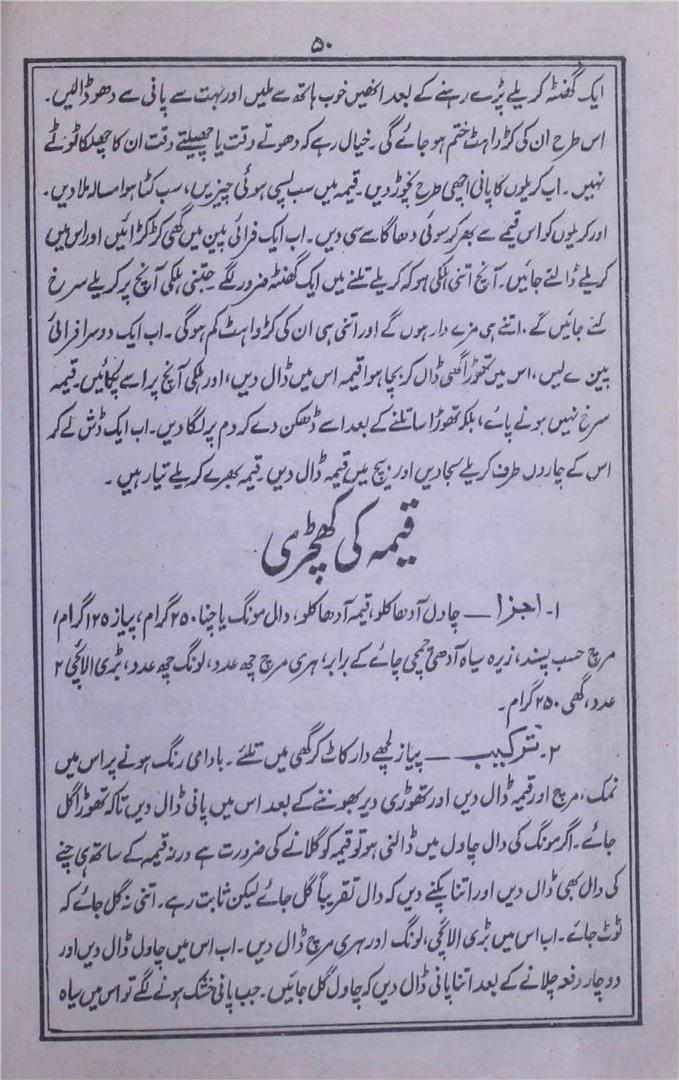 ۵۰
ایک گھنٹہ کریلے پڑے رہنے کے بعد انھیں خوب ہاتھ سے ملیں اور بہت سے پانی سے دھو ڈالیں۔
اس طرح ان کی کڑواہٹ ختم ہو جائے گی۔ خیال رہے کہ دھوتے وقت یا چھیلتے وقت ان کا چھلکا ٹوٹے
نہیں۔ اب کریلوں کا پانی اچھی طرح نچوڑ دیں۔ قیمہ میں سب پسی ہوئی چیزیں، سب کٹا ہوا مسالہ ملا دیں۔
اور کریلوں کو اس قیمے سے بھر کر سوئی دھاگا سے سی دیں۔ اب ایک فرائی پین میں گھی کڑکڑائیں اور اس میں
کریلے ڈالتے جائیں۔ آنچ اتنی ہلکی ہو کہ کریلے تلنے میں ایک گھنٹہ ضرور لگے۔ جتنی ہلکی آنچ پر کریلے سرخ
کئے جائیں گے، اتنے ہی مزے دار ہوں گے اور اتنی ہی ان کی کڑواہٹ کم ہوگی۔ اب ایک دوسرا فرائی
پین لیں، اس میں تھوڑا گھی ڈال کر بچا ہوا قیمہ اس میں ڈال دیں، اور ہلکی آنچ پر اسے پکائیں۔ قیمہ
سرخ نہیں ہونے پائے، بلکہ تھوڑا سا تلنے کے بعد اسے ڈھکن دے کر دم پر لگا دیں۔ اب ایک ڈش لے کر
اس کے چاروں طرف کریلے سجا دیں اور بیچ میں قیمہ ڈال دیں۔ قیمہ بھرے کریلے تیار ہیں۔
قیمہ کی کھچڑی
۱۔ اجزا ــــ چاول آدھا کلو، قیمہ آدھا کلو، دال مونگ یا چنا ۲۵۰ گرام، پیاز ۱۲۵ گرام،
مرچ حسب پسند، زیرہ سیاہ آدھی چمچی چائے کے برابر، ہری مرچ چھ عدد، لونگ چھ عدد، بڑی الائچی ۲
عدد، گھی ۲۵۰ گرام۔
۲۔ ترکیب ــــ پیاز لچھے دار کاٹ کر گھی میں تلئے۔ بادامی رنگ ہونے پر اس میں
نمک، مرچ اور قیمہ ڈال دیں اور تھوڑی دیر بھوننے کے بعد اس میں پانی ڈال دیں تاکہ تھوڑا گل
جائے۔ اگر مونگ کی دال چاول میں ڈالنی ہو تو قیمہ کو گلانے کی ضرورت ہے ورنہ قیمہ کے ساتھ ہی چنے
کی دال بھی ڈال دیں اور اتنا پکنے دیں کہ دال تقریباً گل جائے لیکن ثابت رہے۔ اتنی نہ گل جائے کہ
ٹوٹ جائے۔ اب اس میں بڑی الائچی، لونگ اور ہری مرچ ڈال دیں۔ اب اس میں چاول ڈال دیں اور
دو چار دفعہ چلانے کے بعد اتنا پانی ڈال دیں کہ چاول گل جائیں۔ جب پانی خشک ہونے لگے تو اس میں سیاہ